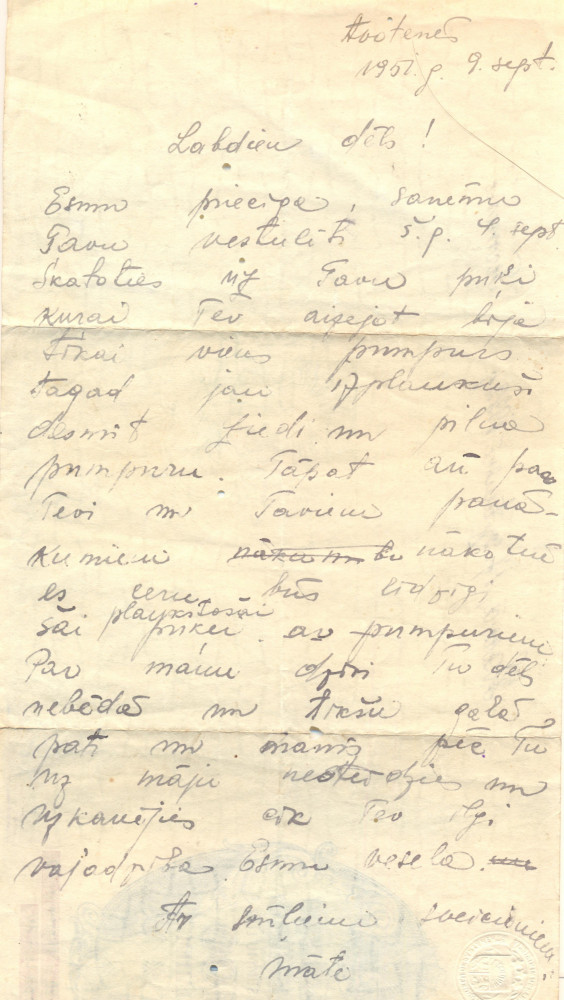 Avotenēs
1951. g. 9. sept.
Labdien dēls!
Esmu priecīga, saņēmu
Tavu vēstulīti š.g. 4. sept
Skatoties uz Tavu puķi
kurai Tev aizejot bija
tikai viens pumpurs
tagad jau izplaukuši
desmit ziedi un pilna
pumpuru. Tāpat arī par
Tevi un Taviem panā-
kumiem nākotnē
es ceru būs līdzīgi
šai plaukstošai
puķei ar pumpuriem
Par mānu dzīvi Tu dēls
nebēdā un tikšu galā
pati un manis pēc Tu
uz māju nesteidzies un
uzkavējies cik Tev ilgi
vajadzība. Esmu vesela.
Ar sirsnīgiem sveicieniem
māte